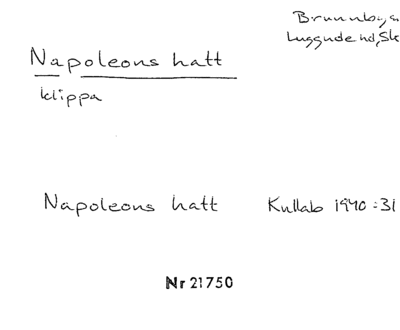 Luggude hd, Sk
Napoleons hatt
klippa
Napoleons hatt Kullab 1940:31
Nr 21750